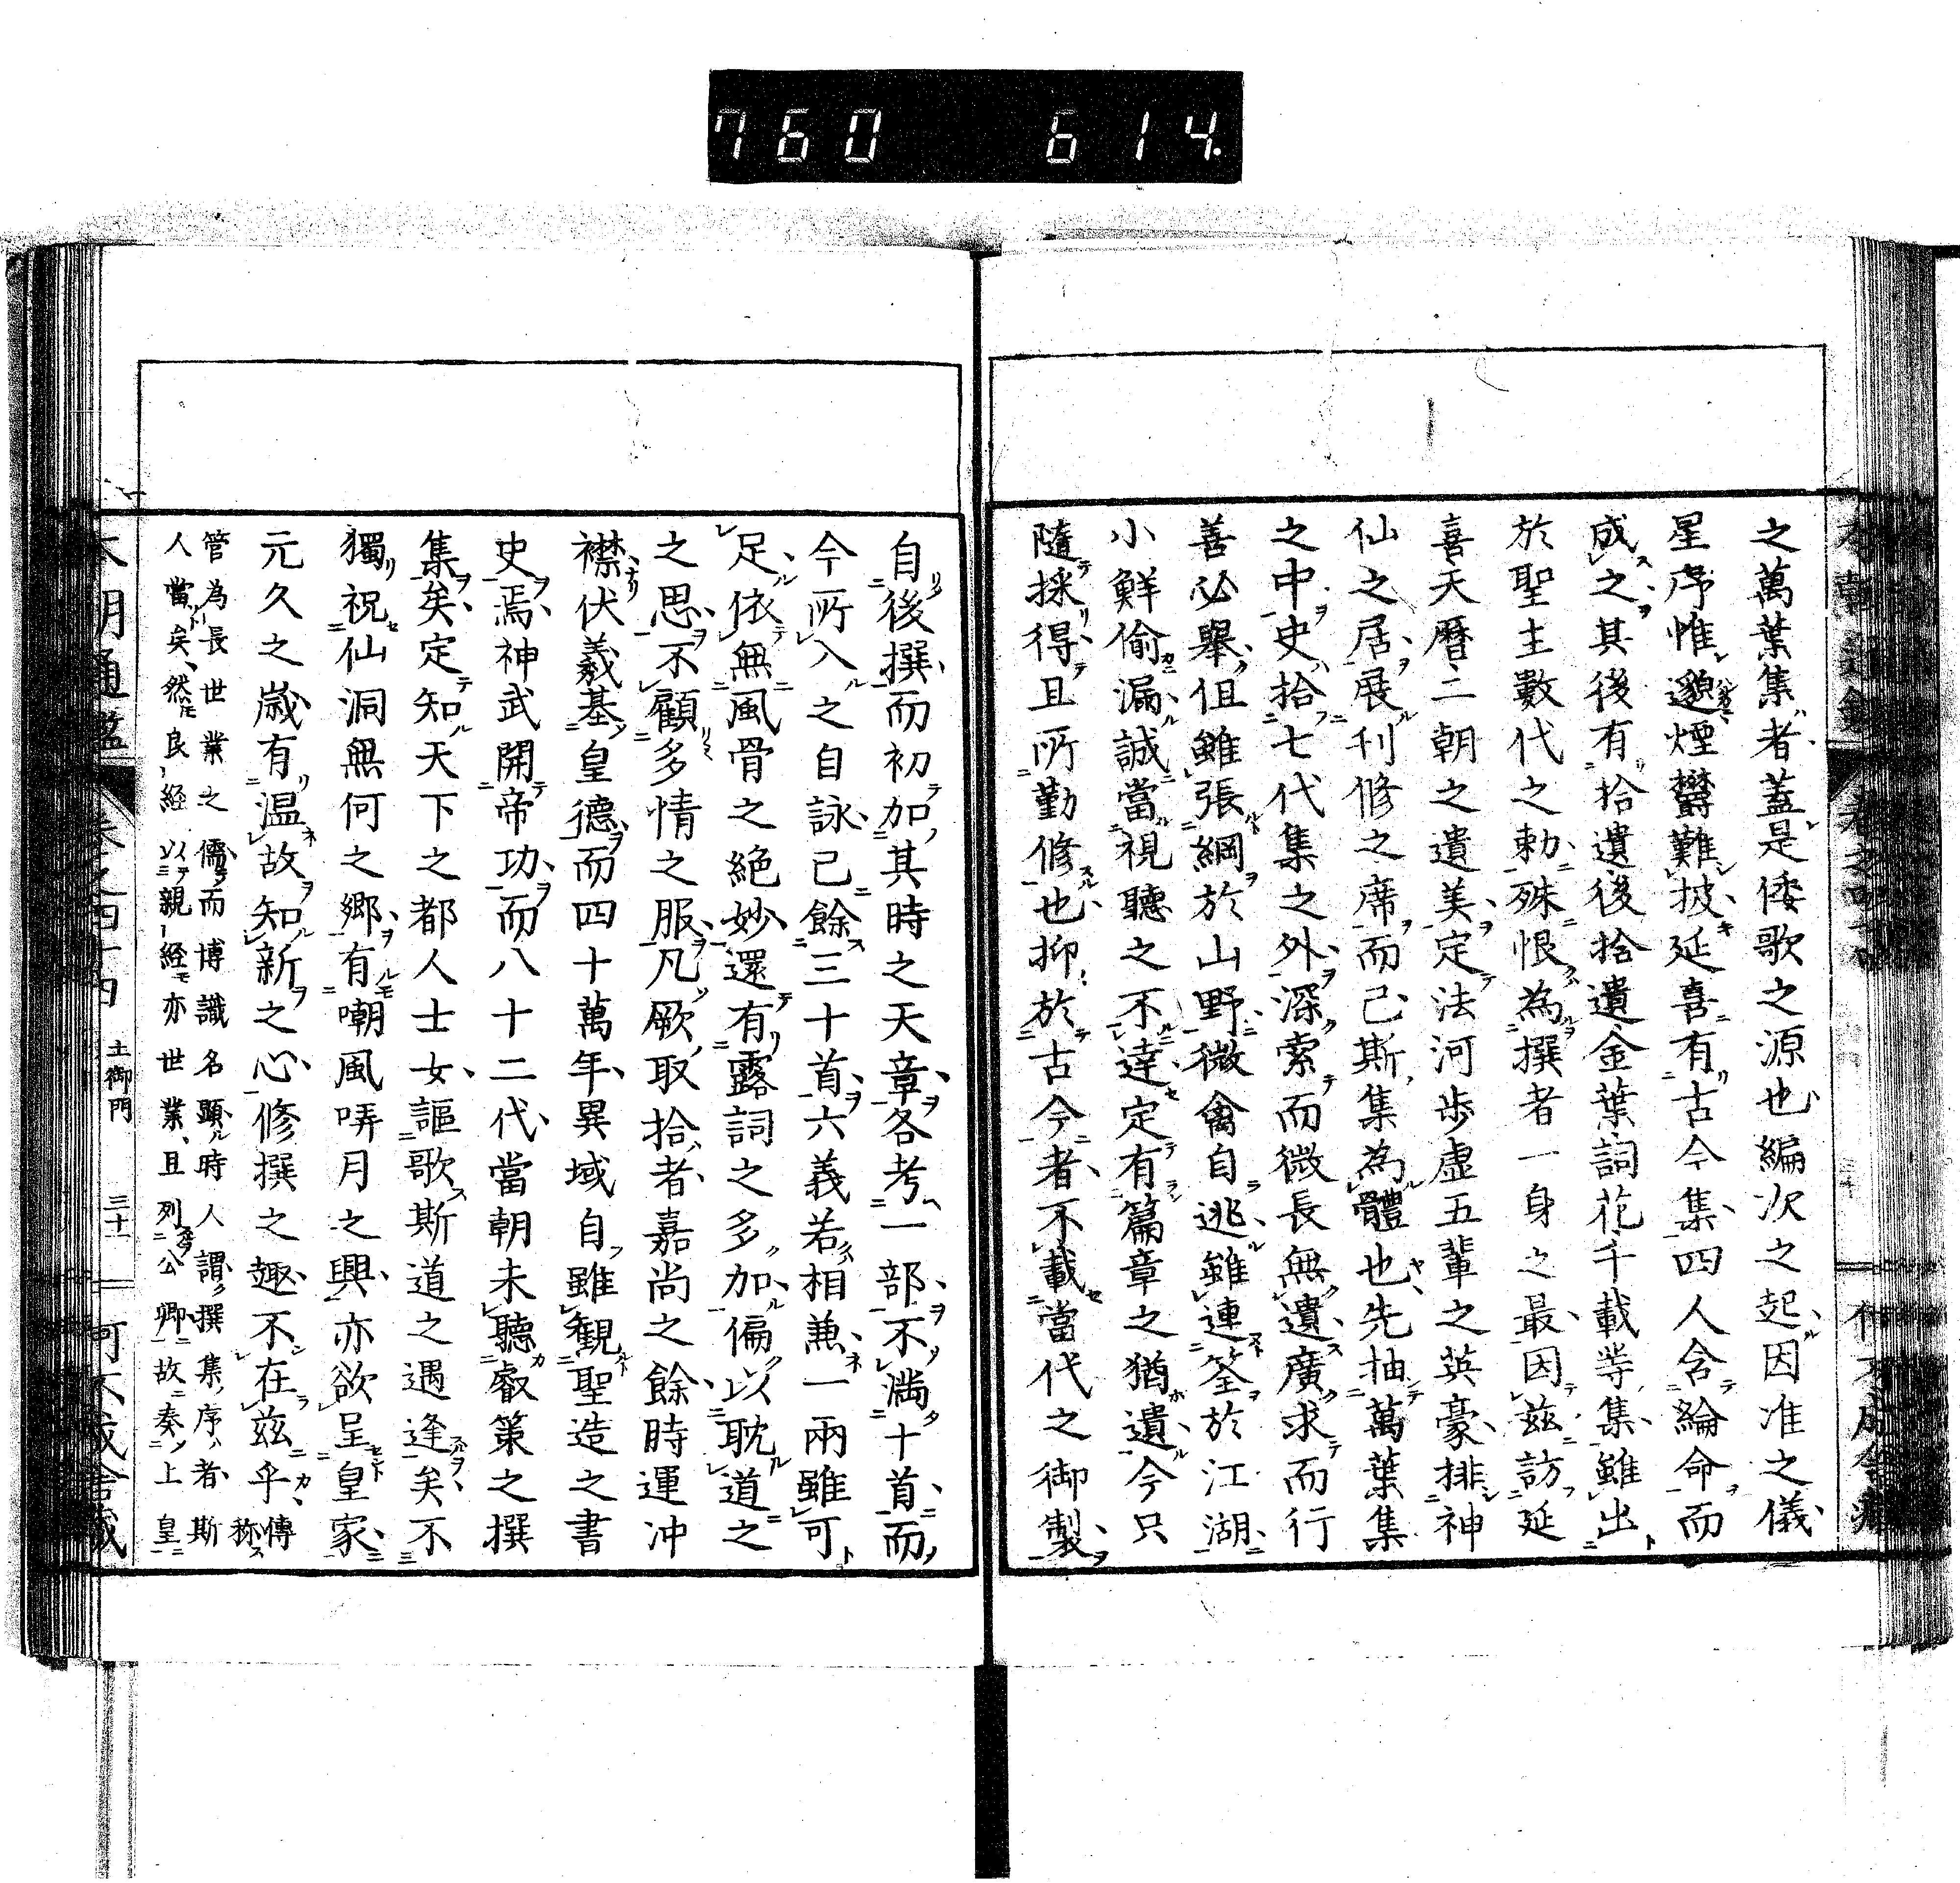 760 614.
之萬葉集者蓋是倭歌之源也編次之起因准之儀
星序惟邈煙欝難披延喜有古今集四人含綸命而
成之其後有拾遺後拾遺金葉詞花千載等集雖出
於聖主數代之勅殊恨為撰者一身之最因茲訪延
喜天曆二朝之遺美定法河步虛五輩之英豪排神
仙之居展刊修之席而已斯集為體也先抽萬葉集
之中史拾七代集之外深索而微長無遺廣求而行
善必舉伹雖張網於山野微禽自逃雖連筌於江湖
小鮮偷漏誠當視聽之不達定有篇章之猶遺今只
隨採得且所勤修也抑於古今者不載當代之御製
自後撰而初加其時之天章各考一部不滿十首而
今所入之自詠已餘三十首六義若相兼一兩雖可
足依無風骨之絕妙還有露詞之多加偏以耽道之
之思不顧多情之服凡厥取拾者嘉尚之餘時運冲
襟伏羲基皇德而四十萬年異域自雖觀聖造之書
史焉神武開帝功而八十二代當朝未聽叡策之撰
集矣定知天下之都人士女謳歌斯道之遇逢矣不
獨祝仙洞無何之鄉有嘲風哢月之興亦欲呈皇家
元久之歲有温故知新之心修撰之趣不在茲乎傳稱
管為長世業之儒而博識名顯時人謂撰集序者斯
人當矣然良經以親經亦世業且列公卿故奏上皇
本朝通鑑 卷之四十四 土御門 三十一